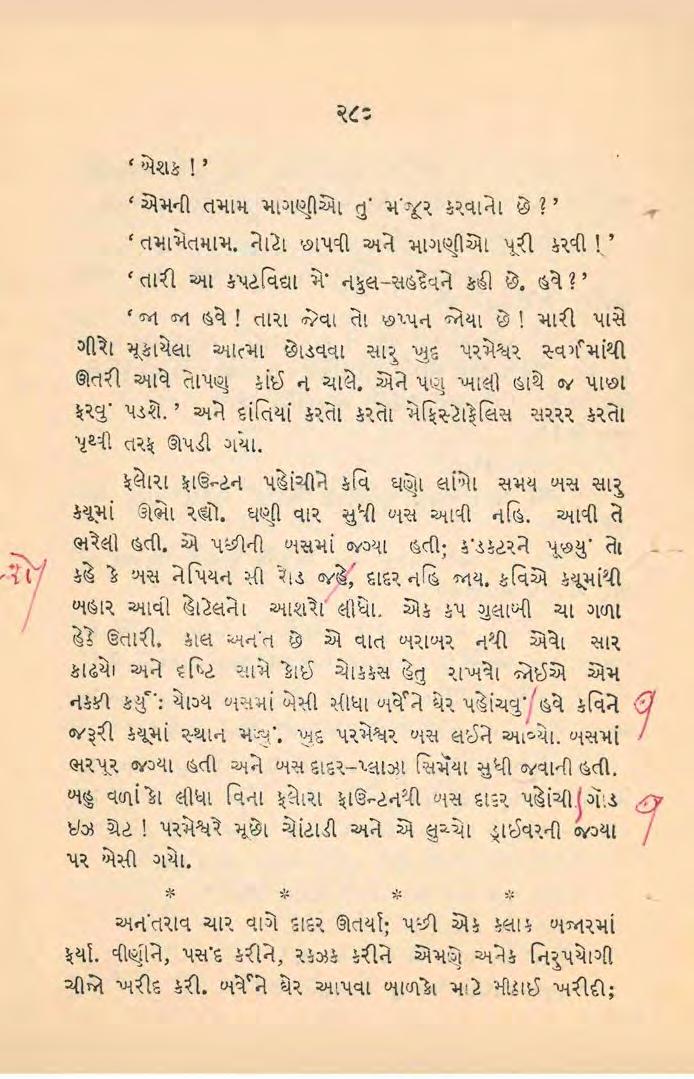 ૨૮૦
‘ બેશક ! ’
‘ એમની તમામ માગણીઓ તું મંજૂર કરવાનો છે ? ’
‘ તમામેતમામ. નોટો છાપવી અને માગણીઓ પૂરી કરવી ! ’
‘ તારી આ કપટવિદ્યા મેં નકુલ–સહદેવને કહી છે. હવે ? ’
‘ જા જા હવે ! તારા જેવા તો છપ્પન જોયા છે ! મારી પાસે
ગીરો મૂકાયેલા આત્મા છોડવવા સારુ ખુદ પરમેશ્વર સ્વર્ગમાંથી
ઊતરી આવે તોપણ કાંઈ ન ચાલે. એને પણ ખાલી હાથે જ પાછા
ફરવું પડશે. ’ અને દાંતિયાં કરતો કરતો મેફિસ્ટોફેલિસ સરરર કરતો
પૃથ્વી તરફ ઊપડી ગયો.
ફ્લોરા ફાઉન્ટન પહોંચીને કવિ ઘણો લાંબો સમય બસ સારુ
ક્યૂમાં ઊભો રહ્યો. ઘણી વાર સુધી બસ આવી નહિ. આવી તે
ભરેલી હતી. એ પછીની બસમાં જગ્યા હતી; કંડકટરને પૂછ્યું તો
કહે કે બસ નેપિયન સી રોડ જહે, દાદર નહિ જાય. કવિએ ક્યૂમાંથી
શે
બહાર આવી હોટેલનો આશરો લીધો. એક કપ ગુલાબી ચા ગળા
હેઠે ઉતારી. કાલ અનંત છે એ વાત બરાબર નથી એવો સાર
કાઢયો અને દૃષ્ટિ સામે કોઈ ચોકકસ હેતુ રાખવો જોઈએ એમ
નકકી કર્યું : યોગ્ય બસમાં બેસી સીધા બર્વેને ઘેર પહોંચવું હવે કવિને
જરૂરી ક્યૂમાં સ્થાન મળ્યું. ખુદ પરમેશ્વર બસ લઈને આવ્યો. બસમાં
ભરપૂર જગ્યા હતી અને બસ દાદર–પ્લાઝા સિનેમા સુધી જવાની હતી.
બહુ વળાંકો લીધા વિના ફ્લોરા ફાઉન્ટનથી બસ દાદર પહોંચી ગૉડ
ઇઝ ગ્રેટ ! પરમેશ્વરે મૂછો ચોંટાડી અને એ લુચ્ચો ડ્રાઈવરની જગ્યા
પર બેસી ગયો.
* * * *
અનંતરાવ ચાર વાગે દાદર ઊતર્યા; પછી એક કલાક બજારમાં
ફર્યા. વીણીને, પસંદ કરીને, રકઝક કરીને એમણે અનેક નિરુપયોગી
ચીજો ખરીદ કરી. બર્વેને ઘેર આપવા બાળકો માટે મીઠાઈ ખરીદી;